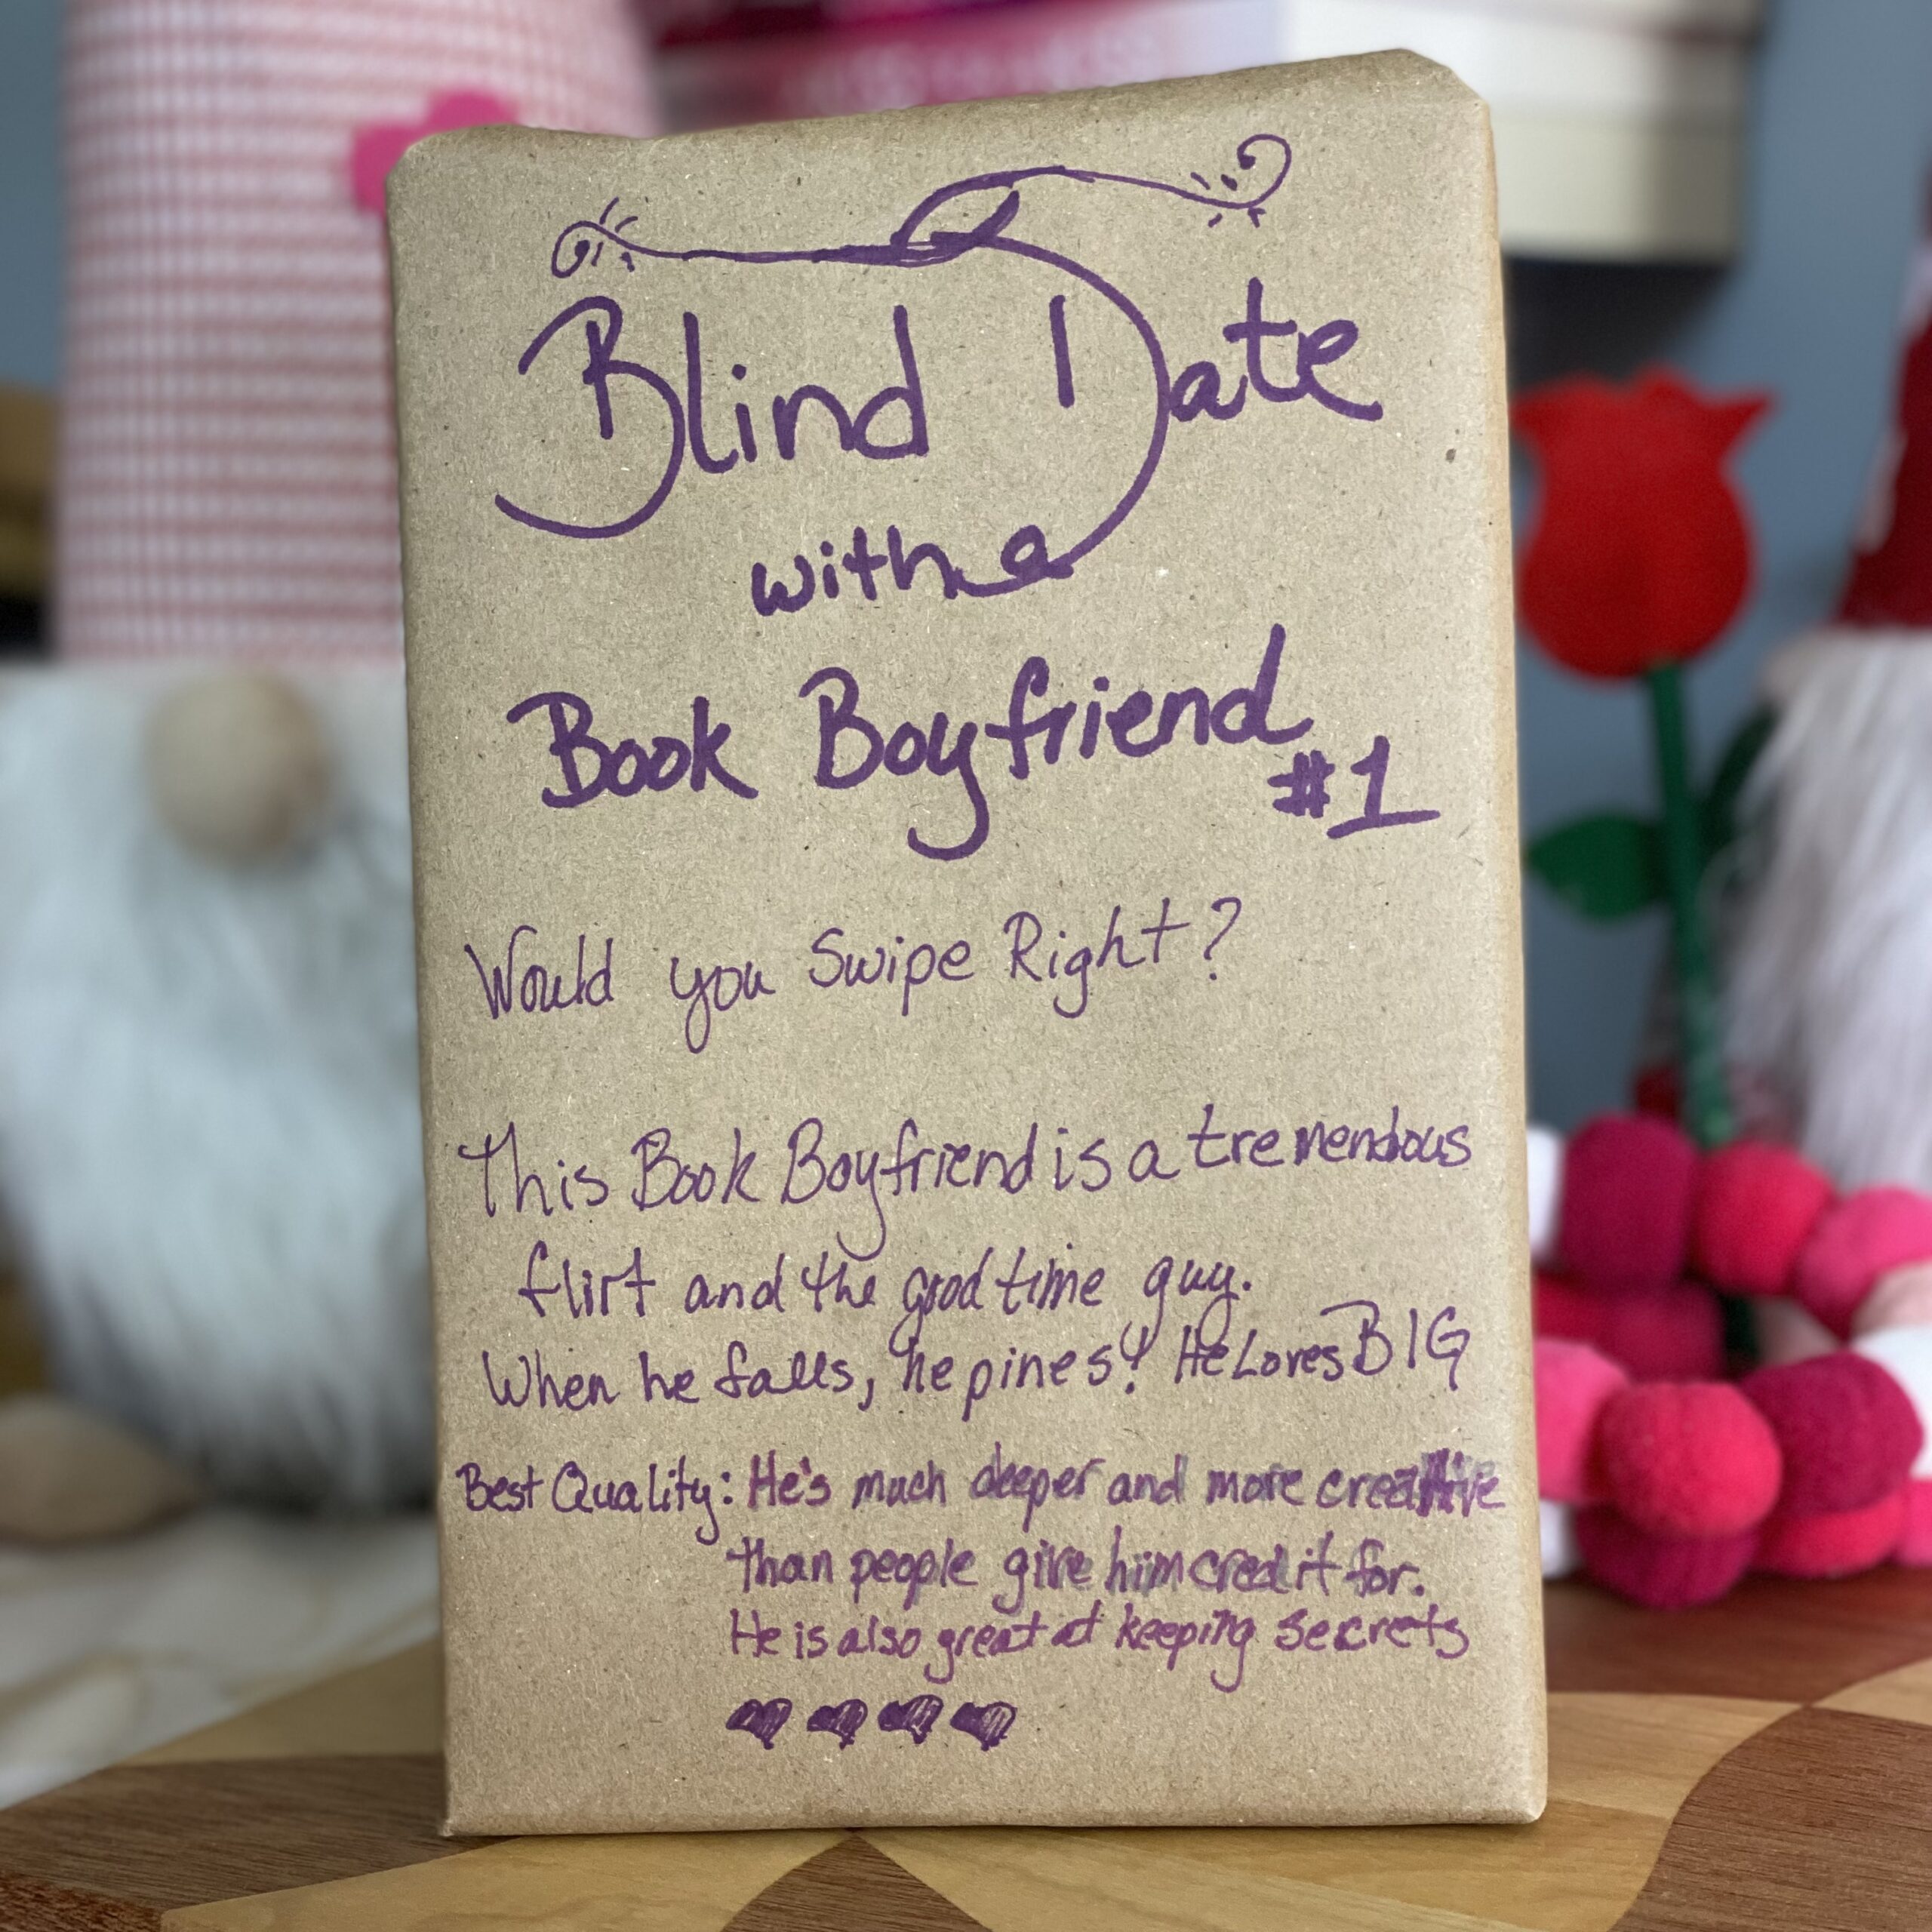 Blind Date
with a
Book Boyfriend
#1
Would you Swipe Right?
This Book Boyfriend is a tremendous
flirt and the good time guy.
When he falls, he pines! He Loves BIG
Best Quality: He's much deeper and more creative
than people give him credit for.
He is also great at keeping secrets